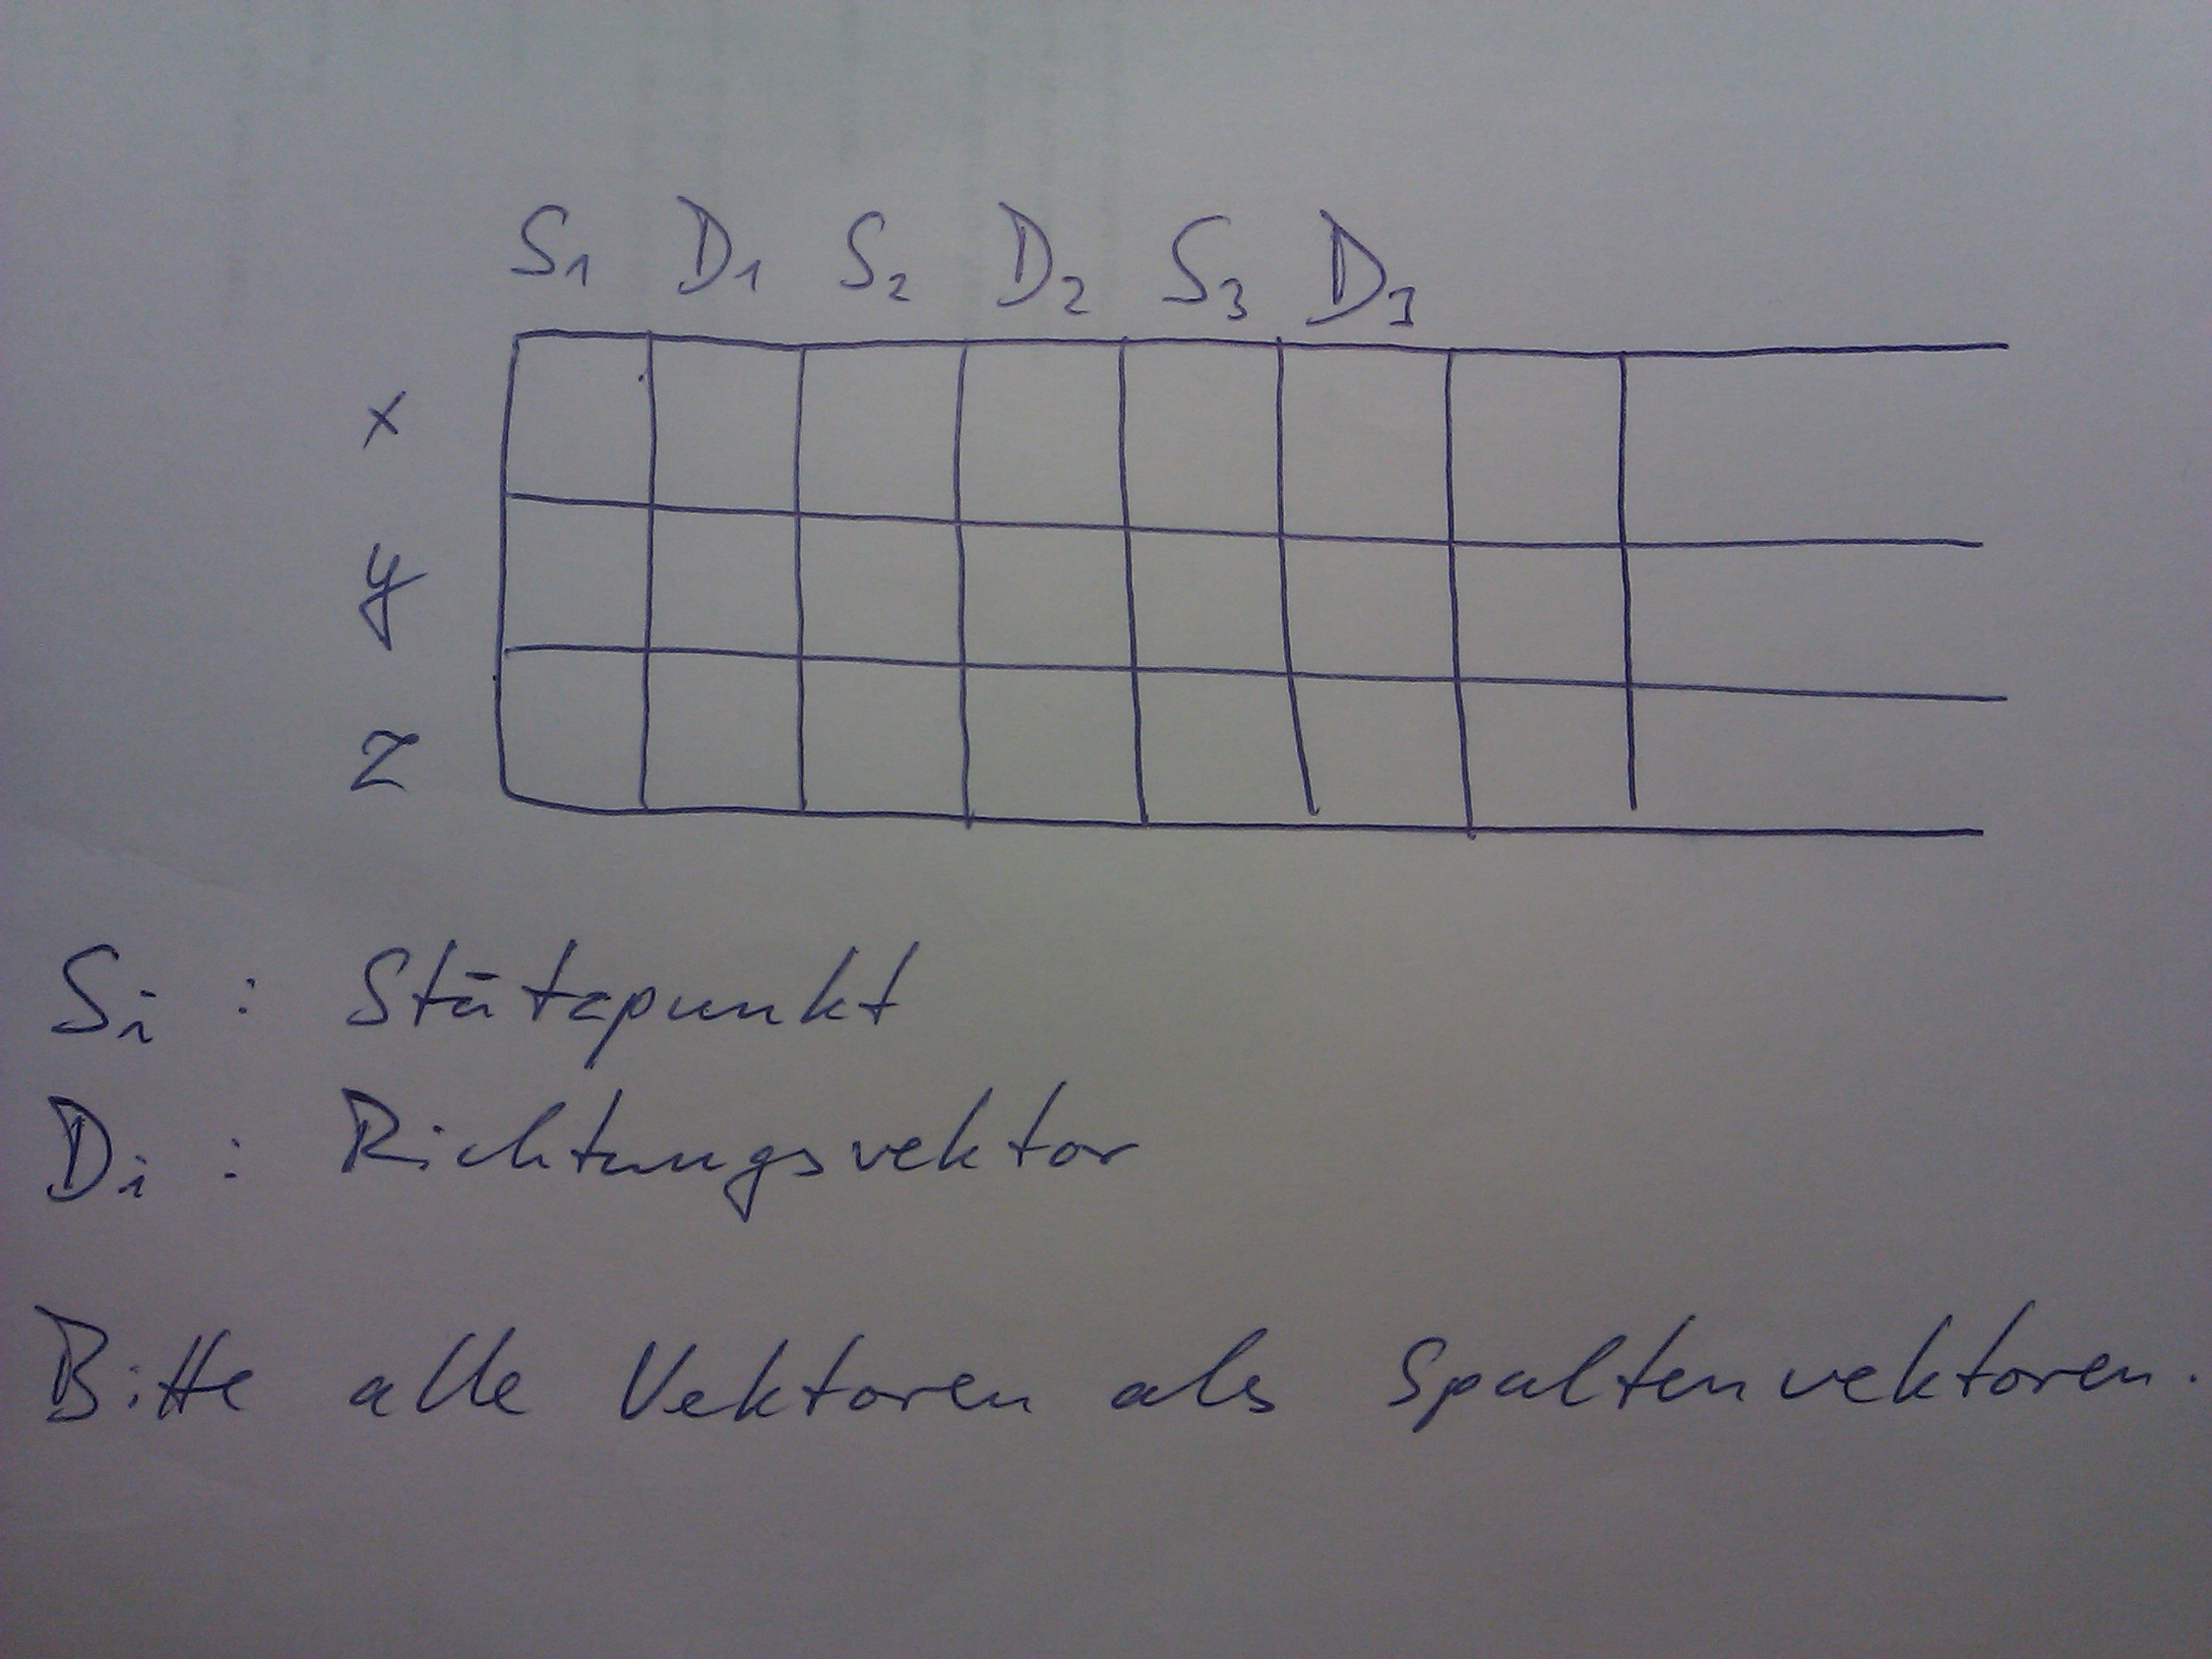 S1 D1 S2 D2 S3 D3
x
y
z
Si : Stützpunkt
Di : Richtungsvektor
Bitte alle Vektoren als Spaltenvektoren.